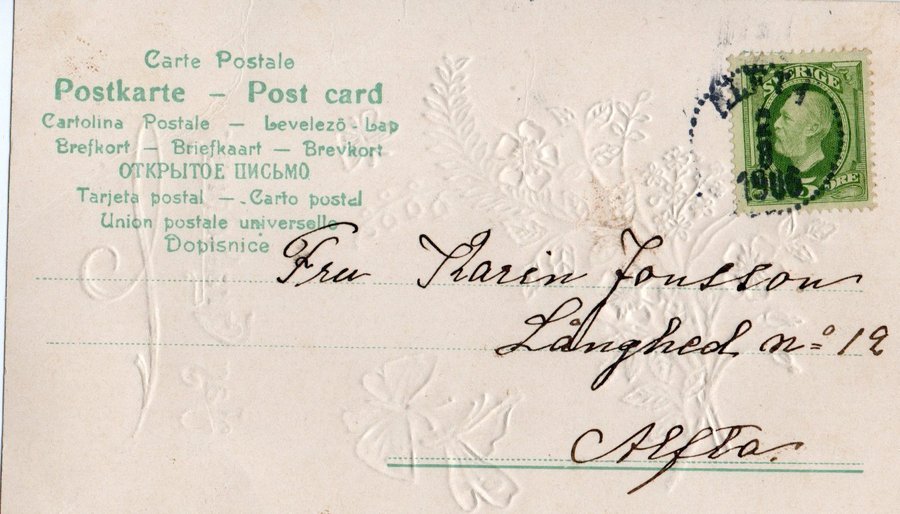 Carte Postale
Postkarte – Post card
Cartolina Postale – Levelező-Lap
Brefkort – Briefkaart – Brevkort
ОТКРЫТОЕ ПИСЬМО
Tarjeta postal – Carto postal
Union postale universelle
Dopisnice
SVERIGE
5 ÖRE
1906
Fru Karin Jonsson
Långhed no 12
Alfta.